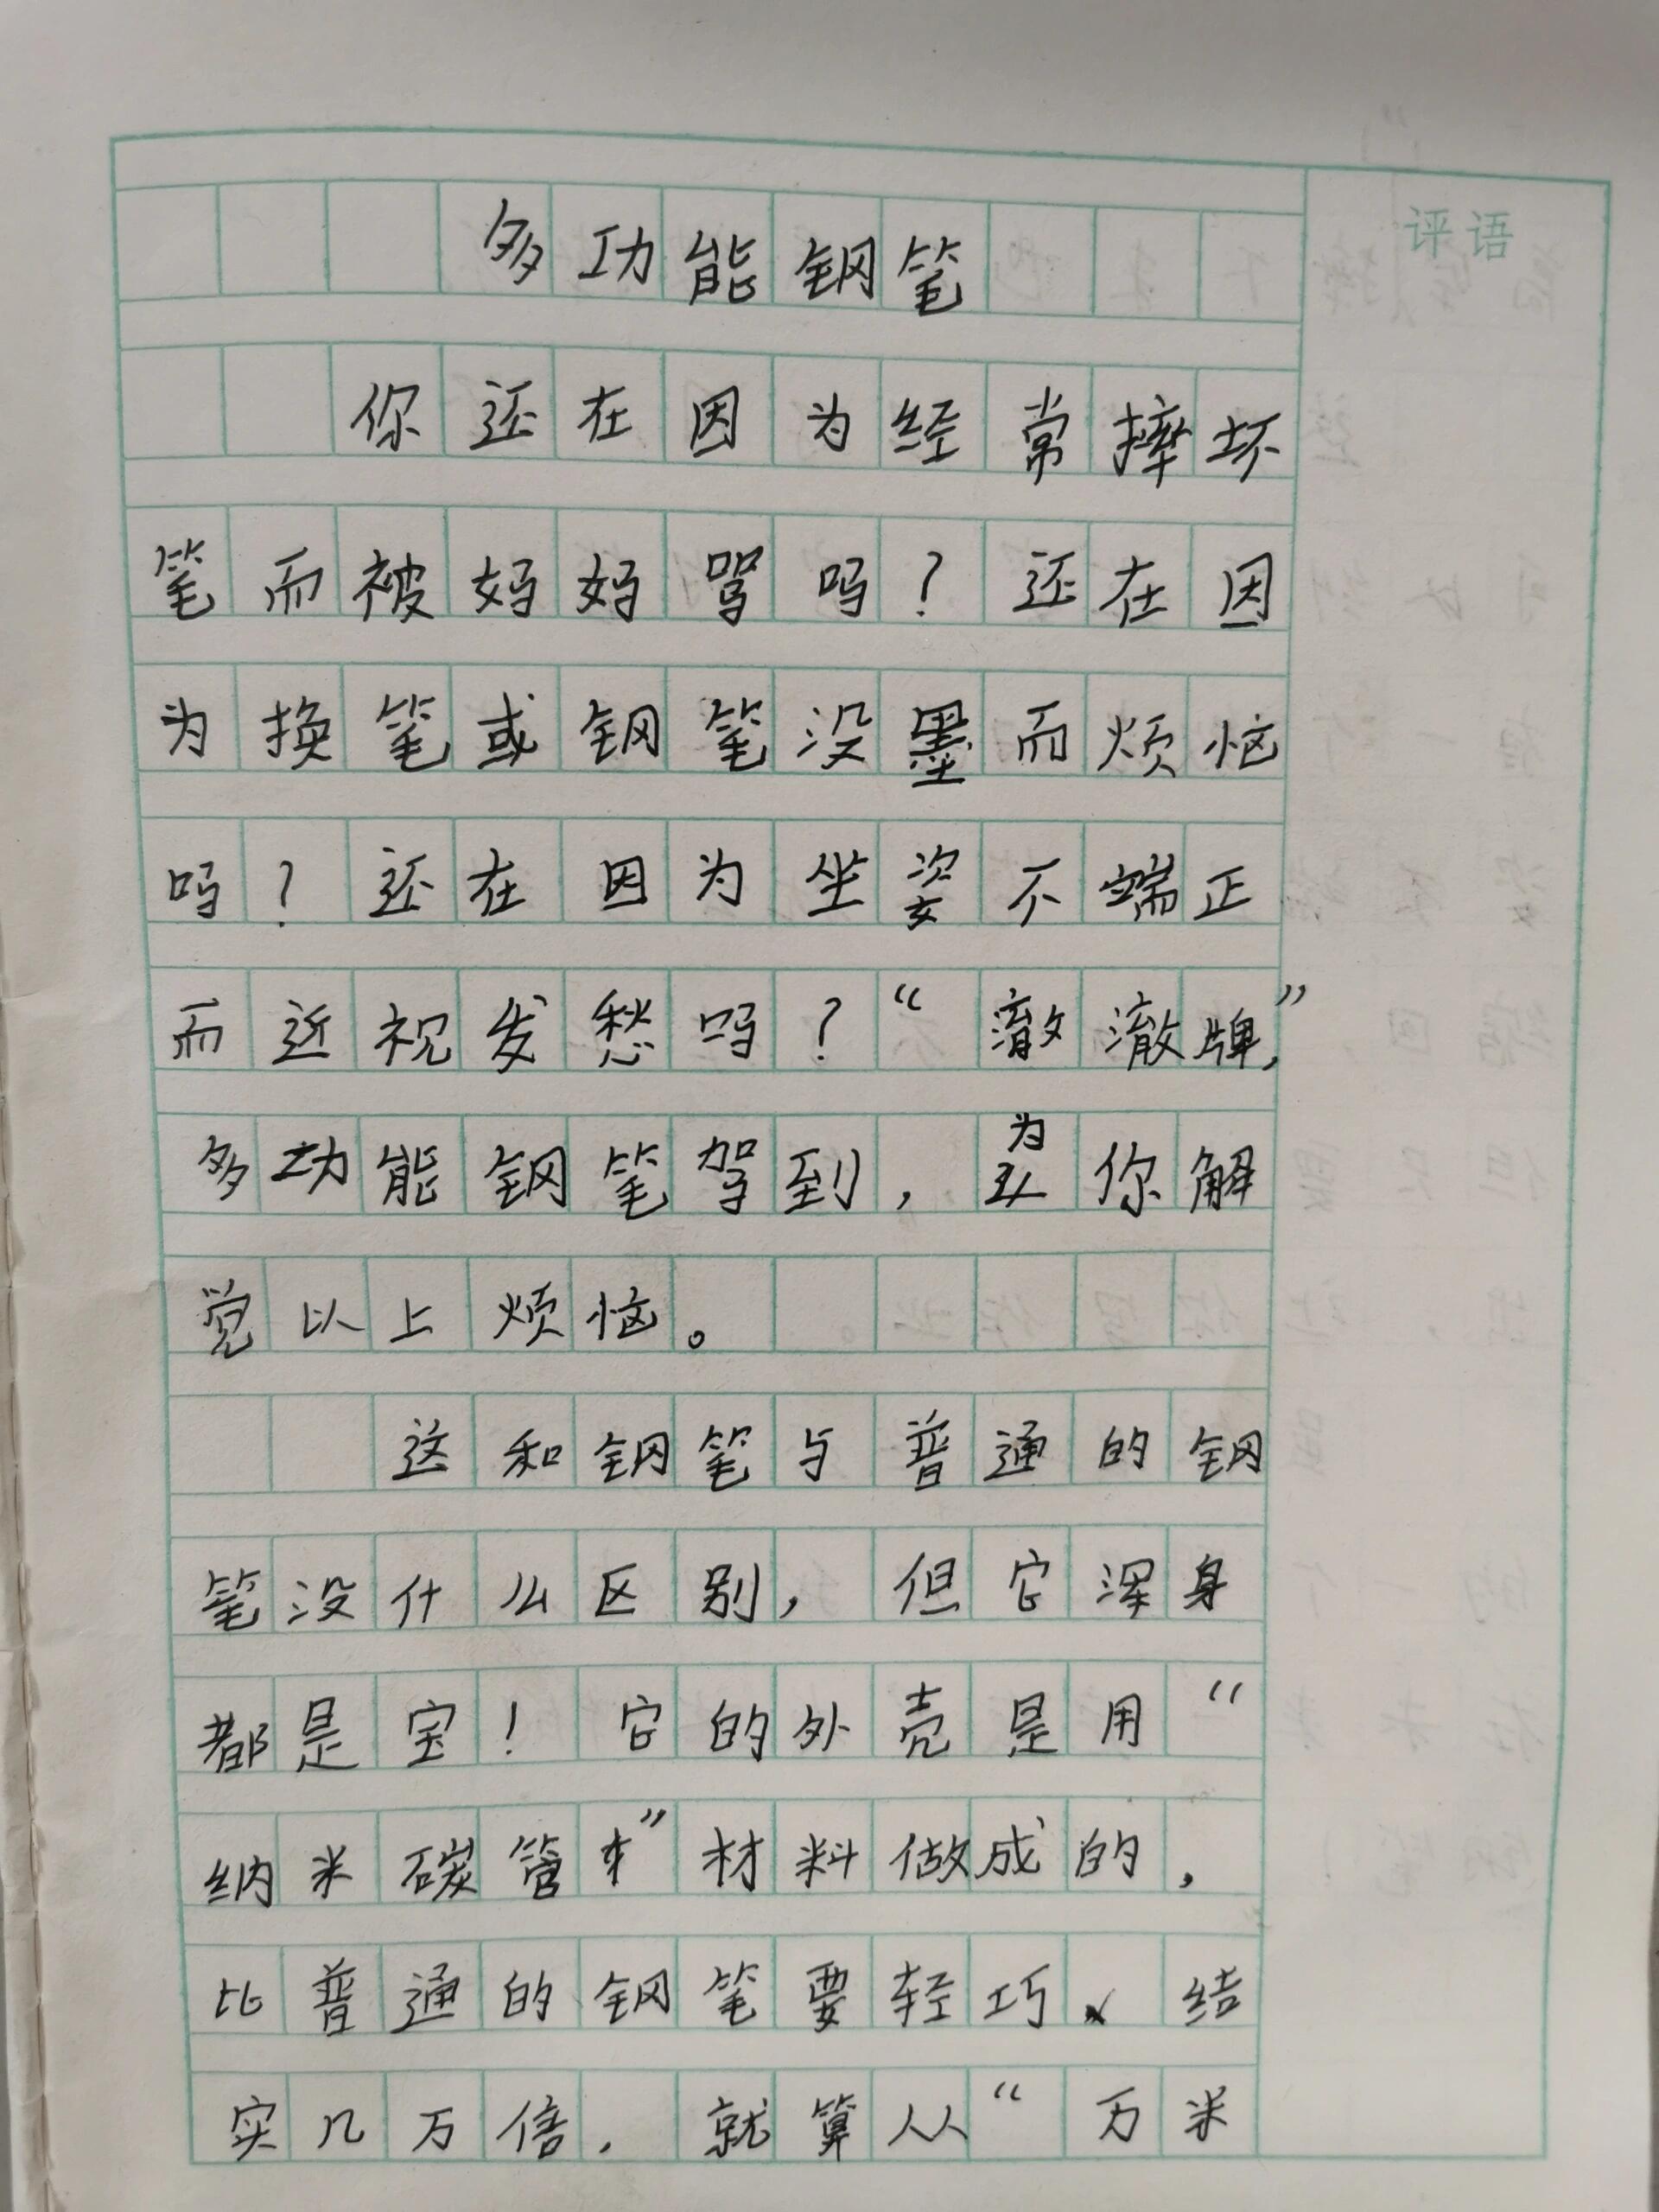 评语
多功能钢笔
你还在因为经常摔坏
笔而被妈妈骂吗？还在因
为换笔或钢笔没墨而烦恼
吗？还在因为坐姿不端正
而近视发愁吗？“澈澈牌”
多功能钢笔驾到，为你解
觉以上烦恼。
这和钢笔与普通的钢
笔没什么区别，但它浑身
都是宝！它的外壳是用“
纳米碳管”材料做成的，
比普通的钢笔要轻巧、结
实几万倍，就算从“万米